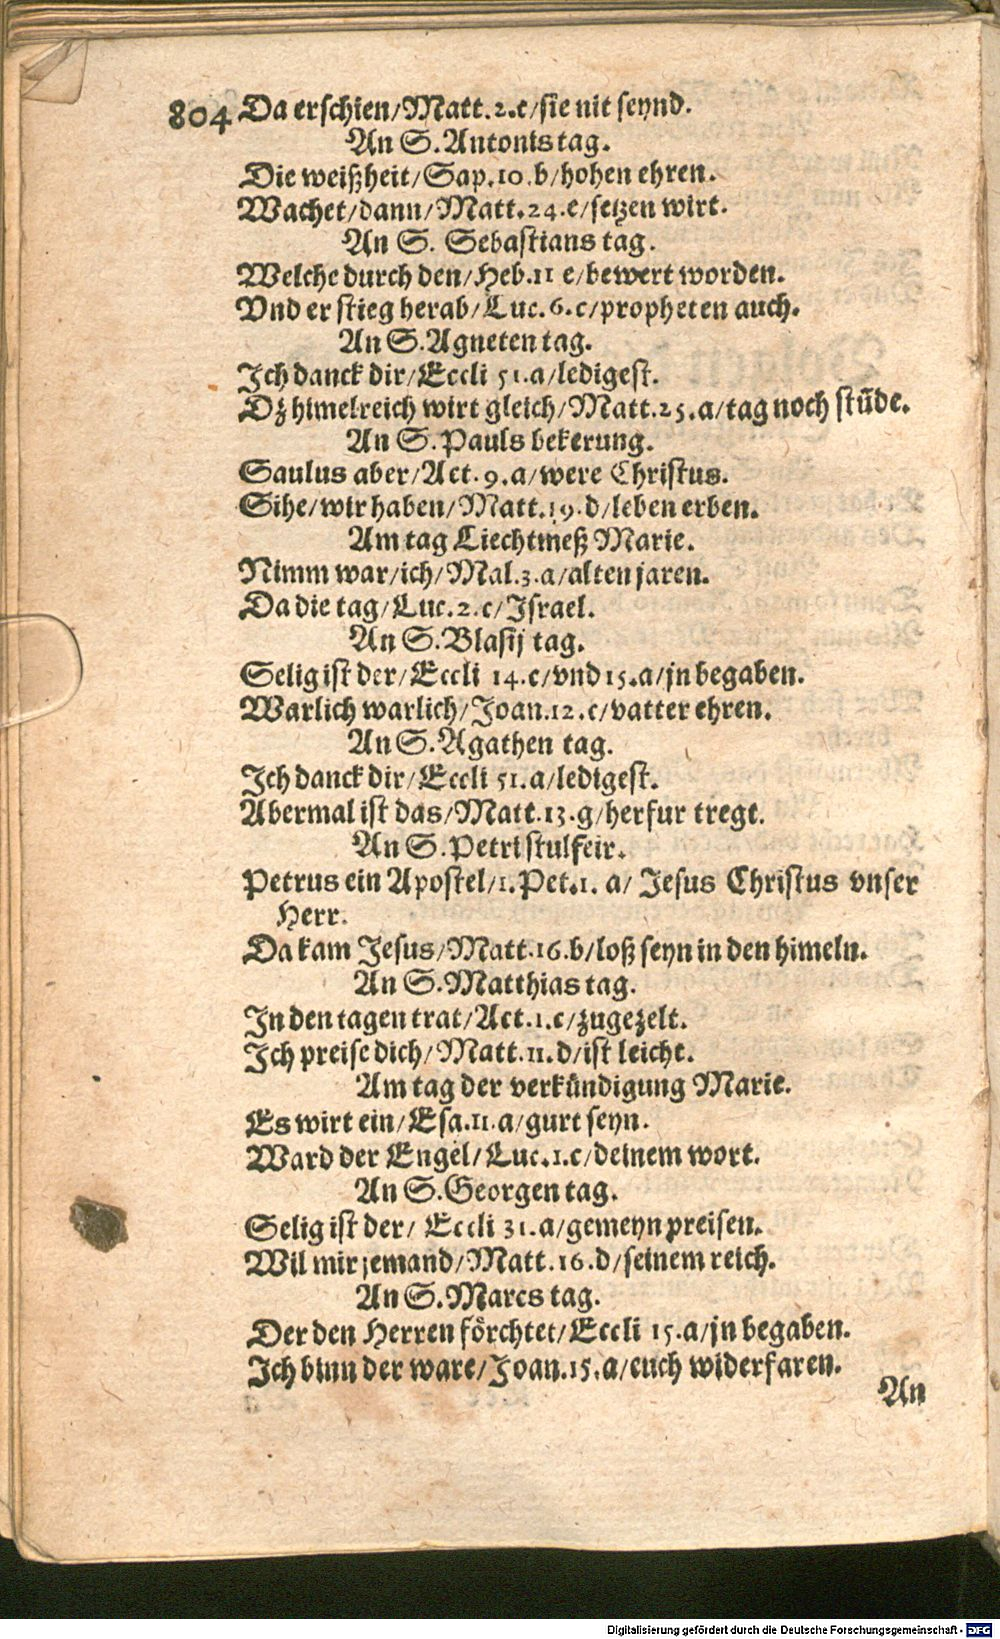 804 Da erschien/Matt.2.c/sie nit seynd.
An S.Antonistag.
Die weißheit/Sap.10.b/hohen ehren.
Wachet/dann/Matt.24.e/setzen wirt.
An S. Sebastians tag.
Welche durch den/Heb.11 e/bewert worden.
Vnd er stieg herab/Luc.6.c/propheten auch.
An S.Agneten tag.
Ich danck dir/Eccli 51.a/ledigest.
Dz himelreich wirt gleich/Matt.25.a/tag noch stũde.
An S.Pauls bekerung.
Saulus aber/Act.9.a/were Christus.
Sihe/wir haben/Matt.19.d/leben erben.
Am tag Liechtmeß Marie.
Nimm war/ich/Mal.3.a/alten jaren.
Da die tag/Luc.2.c/Israel.
An S.Blasij tag.
Selig ist der/Eccli 14.c/vnd 15.a/jn begaben.
Warlich warlich/Joan.12.c/vatter ehren.
An S.Agathen tag.
Ich danck dir/Eccli 51.a/ledigest.
Abermal ist das/Matt.13.g/herfur tregt.
An S.Petri stulfeir.
Petrus ein Apostel/1.Pet.1. a/ Jesus Christus vnser
Herr.
Da kam Jesus/Matt.16.b/loß seyn in den himeln.
An S.Matthias tag.
In den tagen trat/Act.1.c/zugezelt.
Ich preise dich/Matt.11.d/ist leicht.
Am tag der verkündigung Marie.
Es wirt ein/Esa.11.a/gurt seyn.
Ward der Engel/Luc.1.c/deinem wort.
An S.Georgen tag.
Selig ist der/ Eccli 31.a/gemeyn preisen.
Wil mir jemand/Matt.16.d/seinem reich.
An S.Marcs tag.
Der den Herren förchtet/Eccli 15.a/jn begaben.
Ich binn der ware/Joan.15.a/euch widerfaren.
An
Digitalisierung gefördert durch die Deutsche Forschungsgemeinschaft - DFG